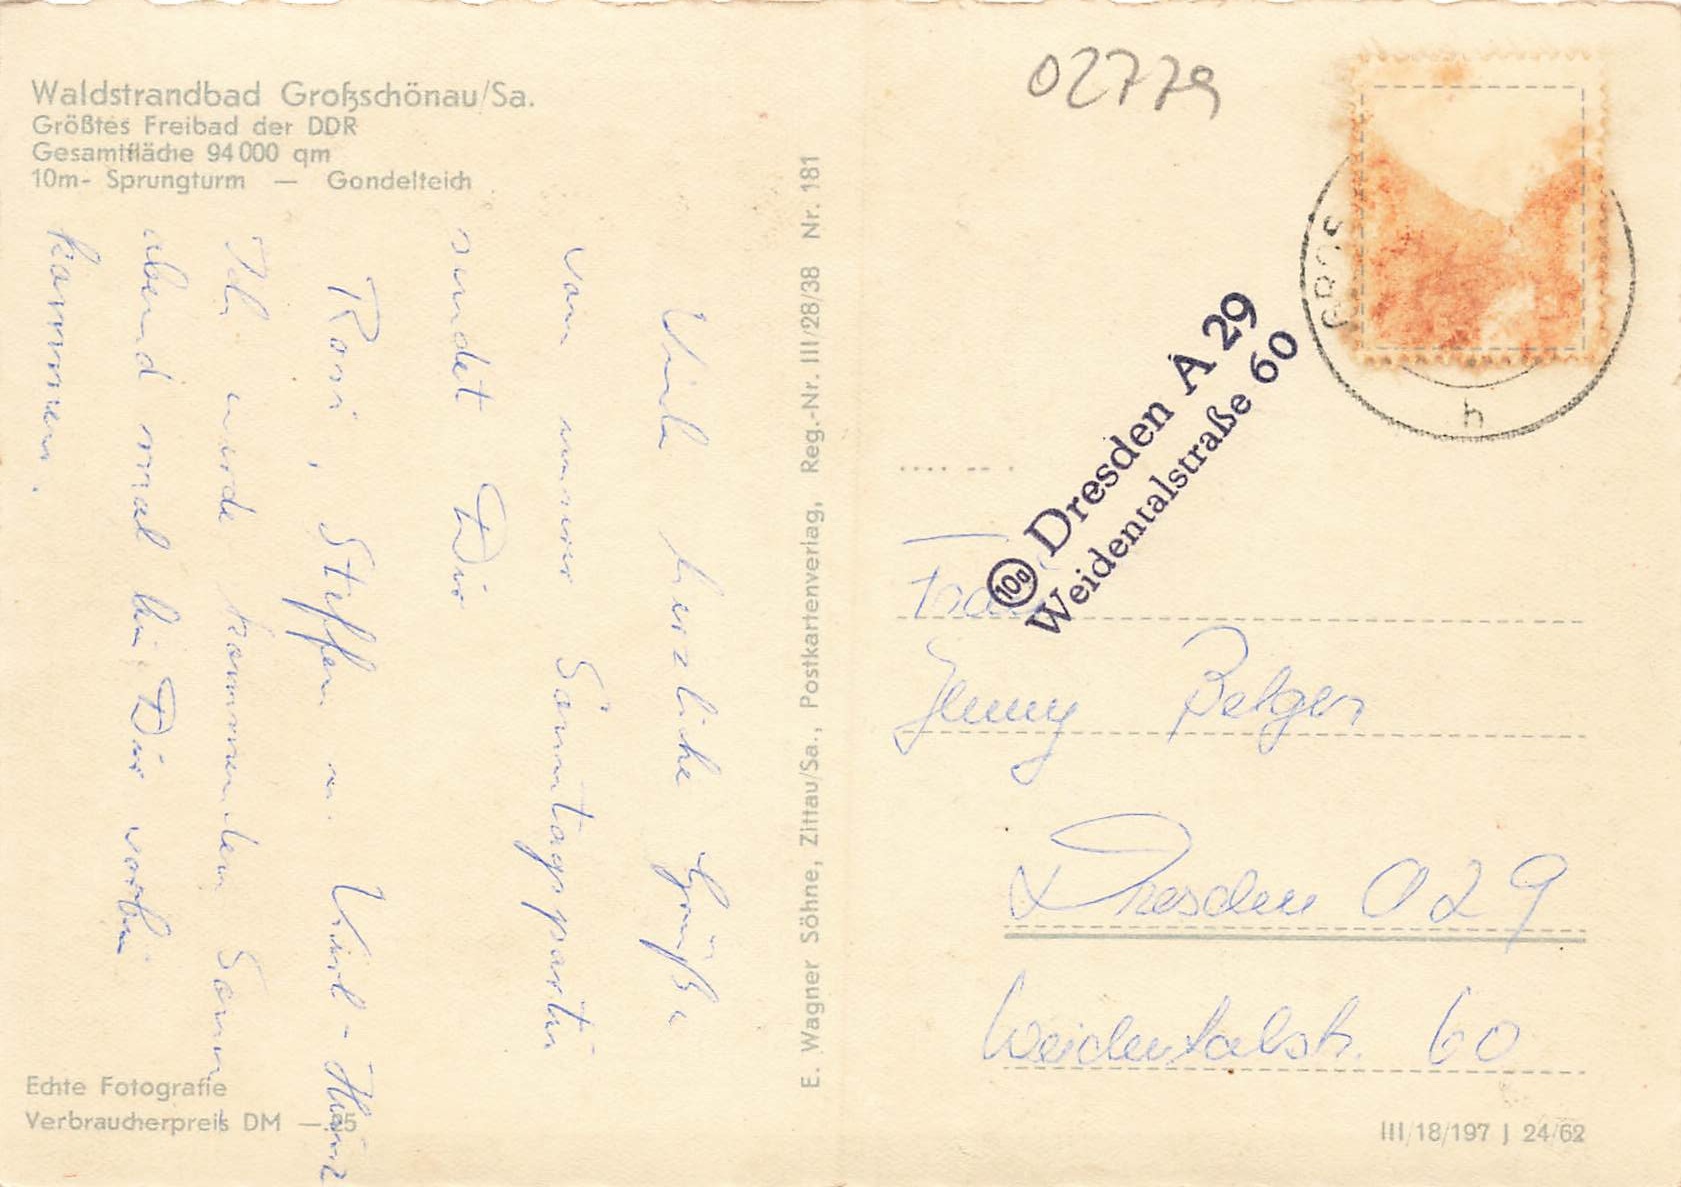 Waldstrandbad Großschönau/Sa.
Größtes Freibad der DDR
Gesamtfläche 94 000 qm
10m- Sprungturm — Gondelteich
Viele herzliche Grüße
von unserer Sonntagspartie
sendet Dir
Rosi, Steffen u. Karl-Heinz
Ich werde kommenden Sonn
abend mal bei Dir vorbei
kommen.
Echte Fotografie
Verbraucherpreis DM —.25
E. Wagner Söhne, Zittau/Sa., Postkartenverlag, Reg.-Nr. III/28/38 Nr. 181
02779
GROS
h
10a Dresden A 29
Weidentalstraße 60
Jenny Belger
Dresden 029
Weidentalstr. 60
III/18/197 J 24/62